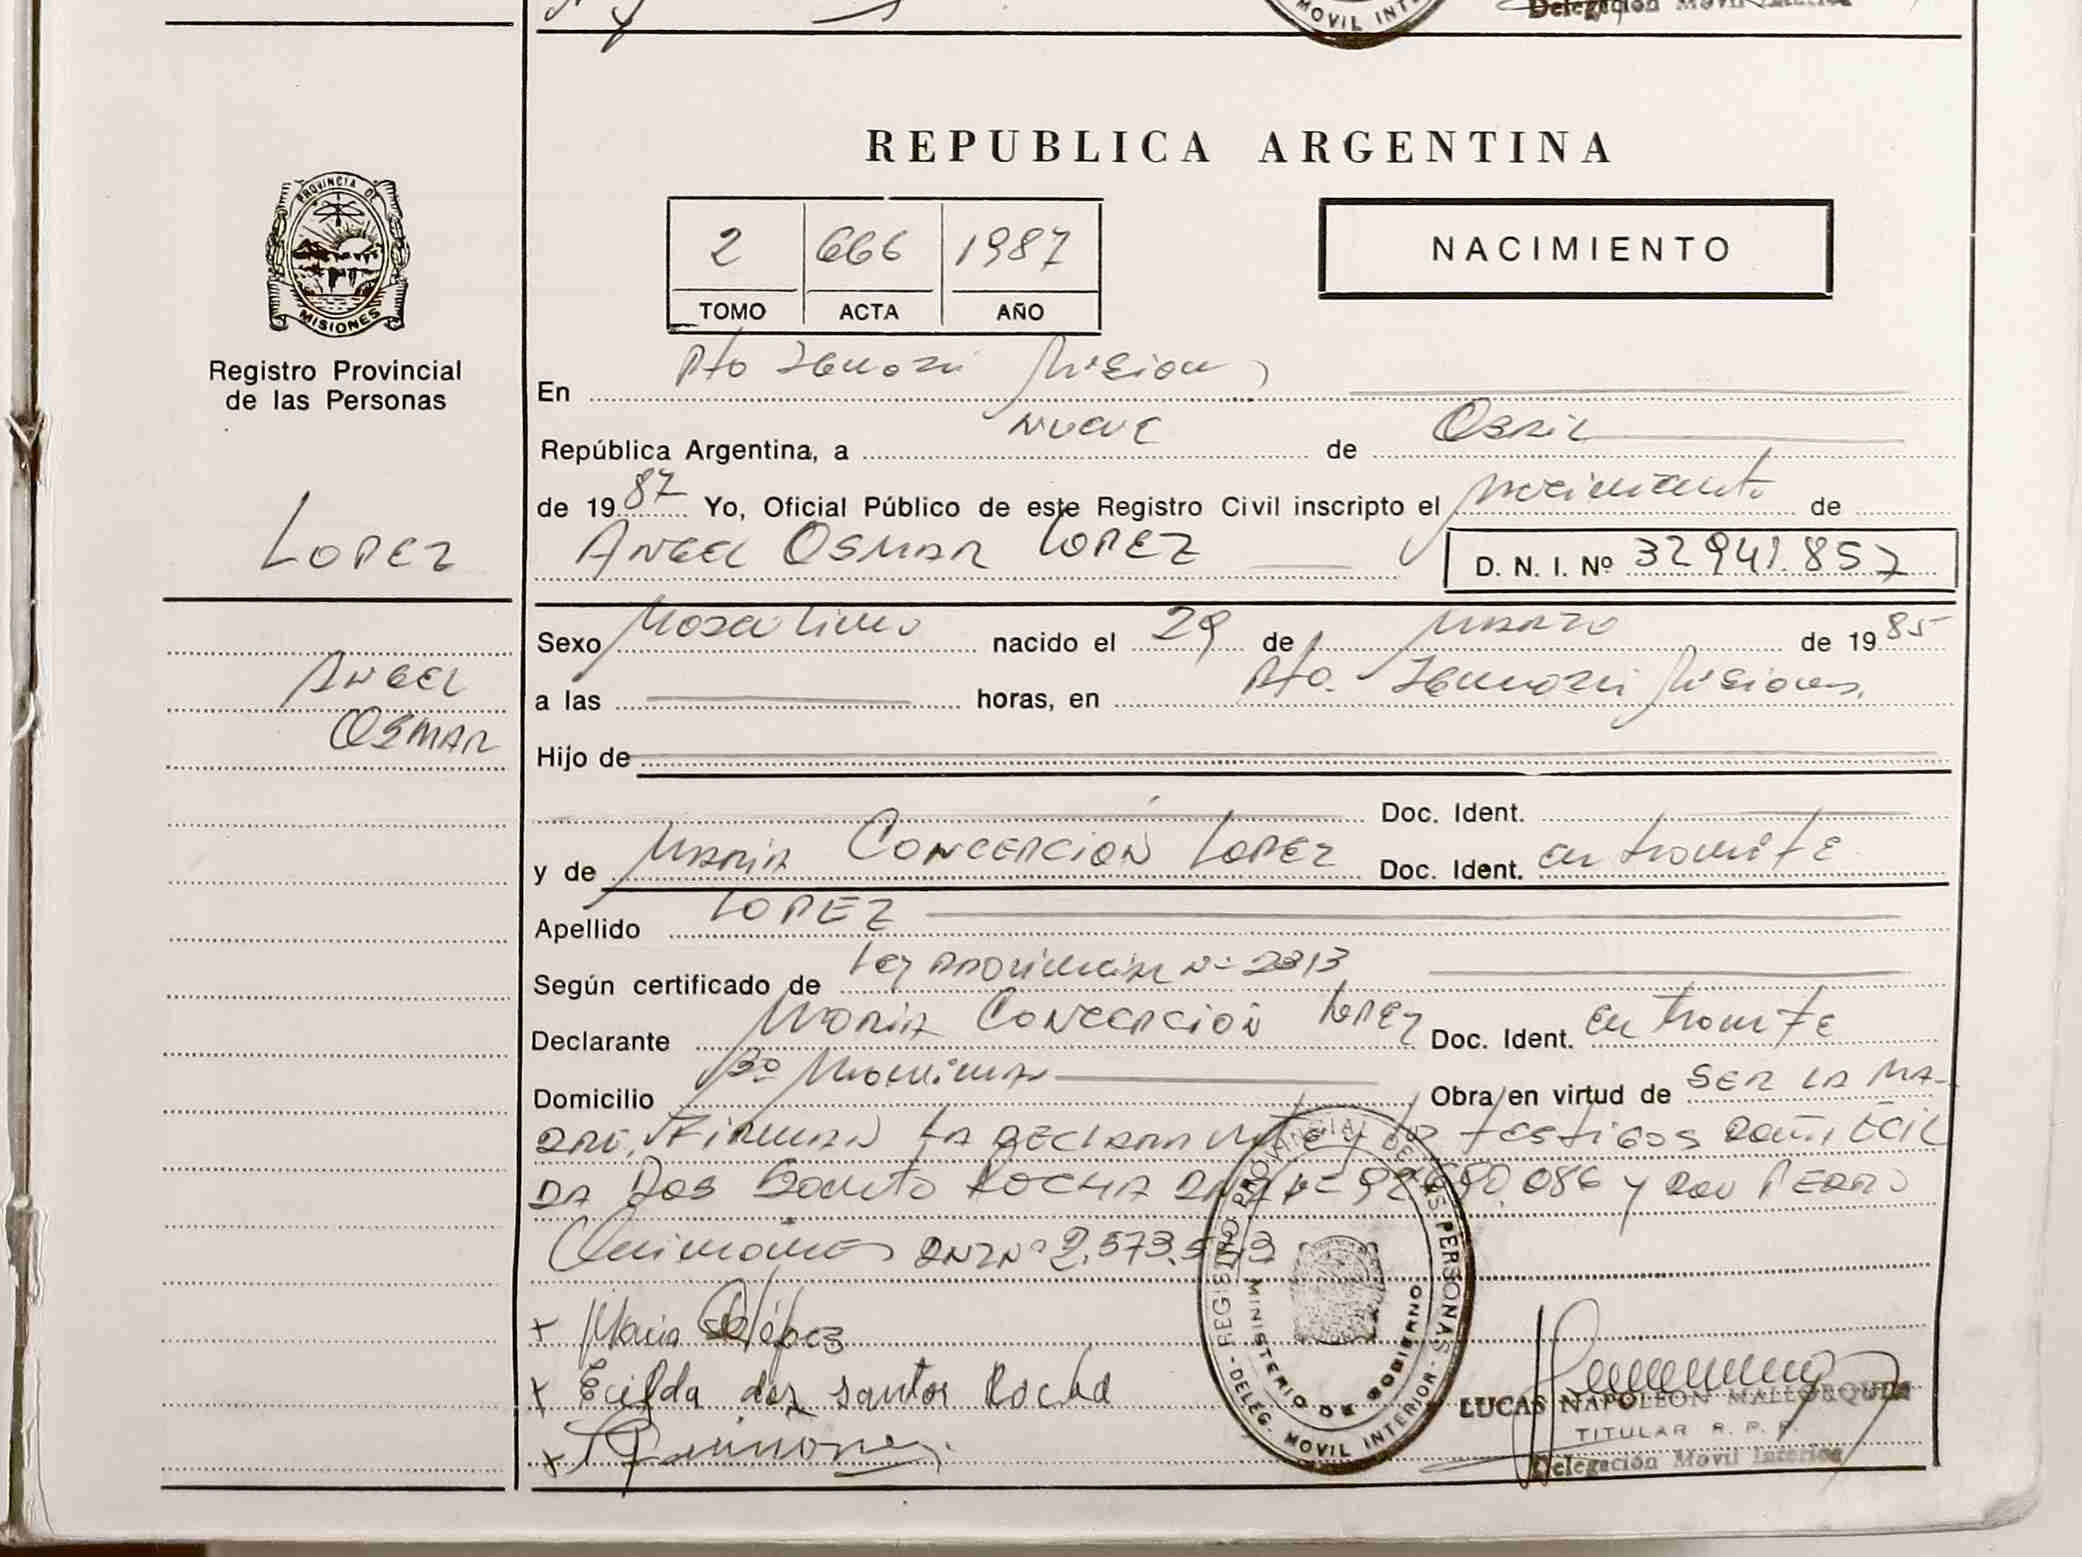 MOVIL INT
Delegación Movil Interior
REPUBLICA ARGENTINA
PROVINCIA DE
MISIONES
Registro Provincial
de las Personas
2 666 1987
TOMO ACTA AÑO
NACIMIENTO
En Pto Iguazú Misiones
República Argentina, a nueve de Abril
de 1987 Yo, Oficial Público de este Registro Civil inscripto el nacimiento de
LOPEZ
ANGEL OSMAR LOPEZ D. N. I. Nº 32941.857
Sexo Masculino nacido el 29 de marzo de 1985
ANGEL
OSMAR
a las horas, en Pto. Iguazú Misiones.
Hijo de
Doc. Ident.
y de MARIA CONCEPCION LOPEZ Doc. Ident. en tramite
Apellido LOPEZ
Según certificado de Ley PROVINCIAL Nº 2313
Declarante MARIA CONCEPCION LOPEZ Doc. Ident. en tramite
Domicilio Bº Obra en virtud de SER LA MA-
DRE. FIRMAN LA DECLARANTE y testigos DOÑA ECIL
DA DOS Santos ROCHA DNI Nº 92.690.086 y DON PEDRO
DNI Nº 2.573.
x Maria López
x Ecilda dos santos Rocha
x
REGISTRO PROVINCIAL DE LAS PERSONAS
MINISTERIO DE GOBIERNO
- DELEG. MOVIL INTERIOR -
LUCAS NAPOLEON MALLORQUIN
TITULAR R. P. P.
Delegación Movil Interior